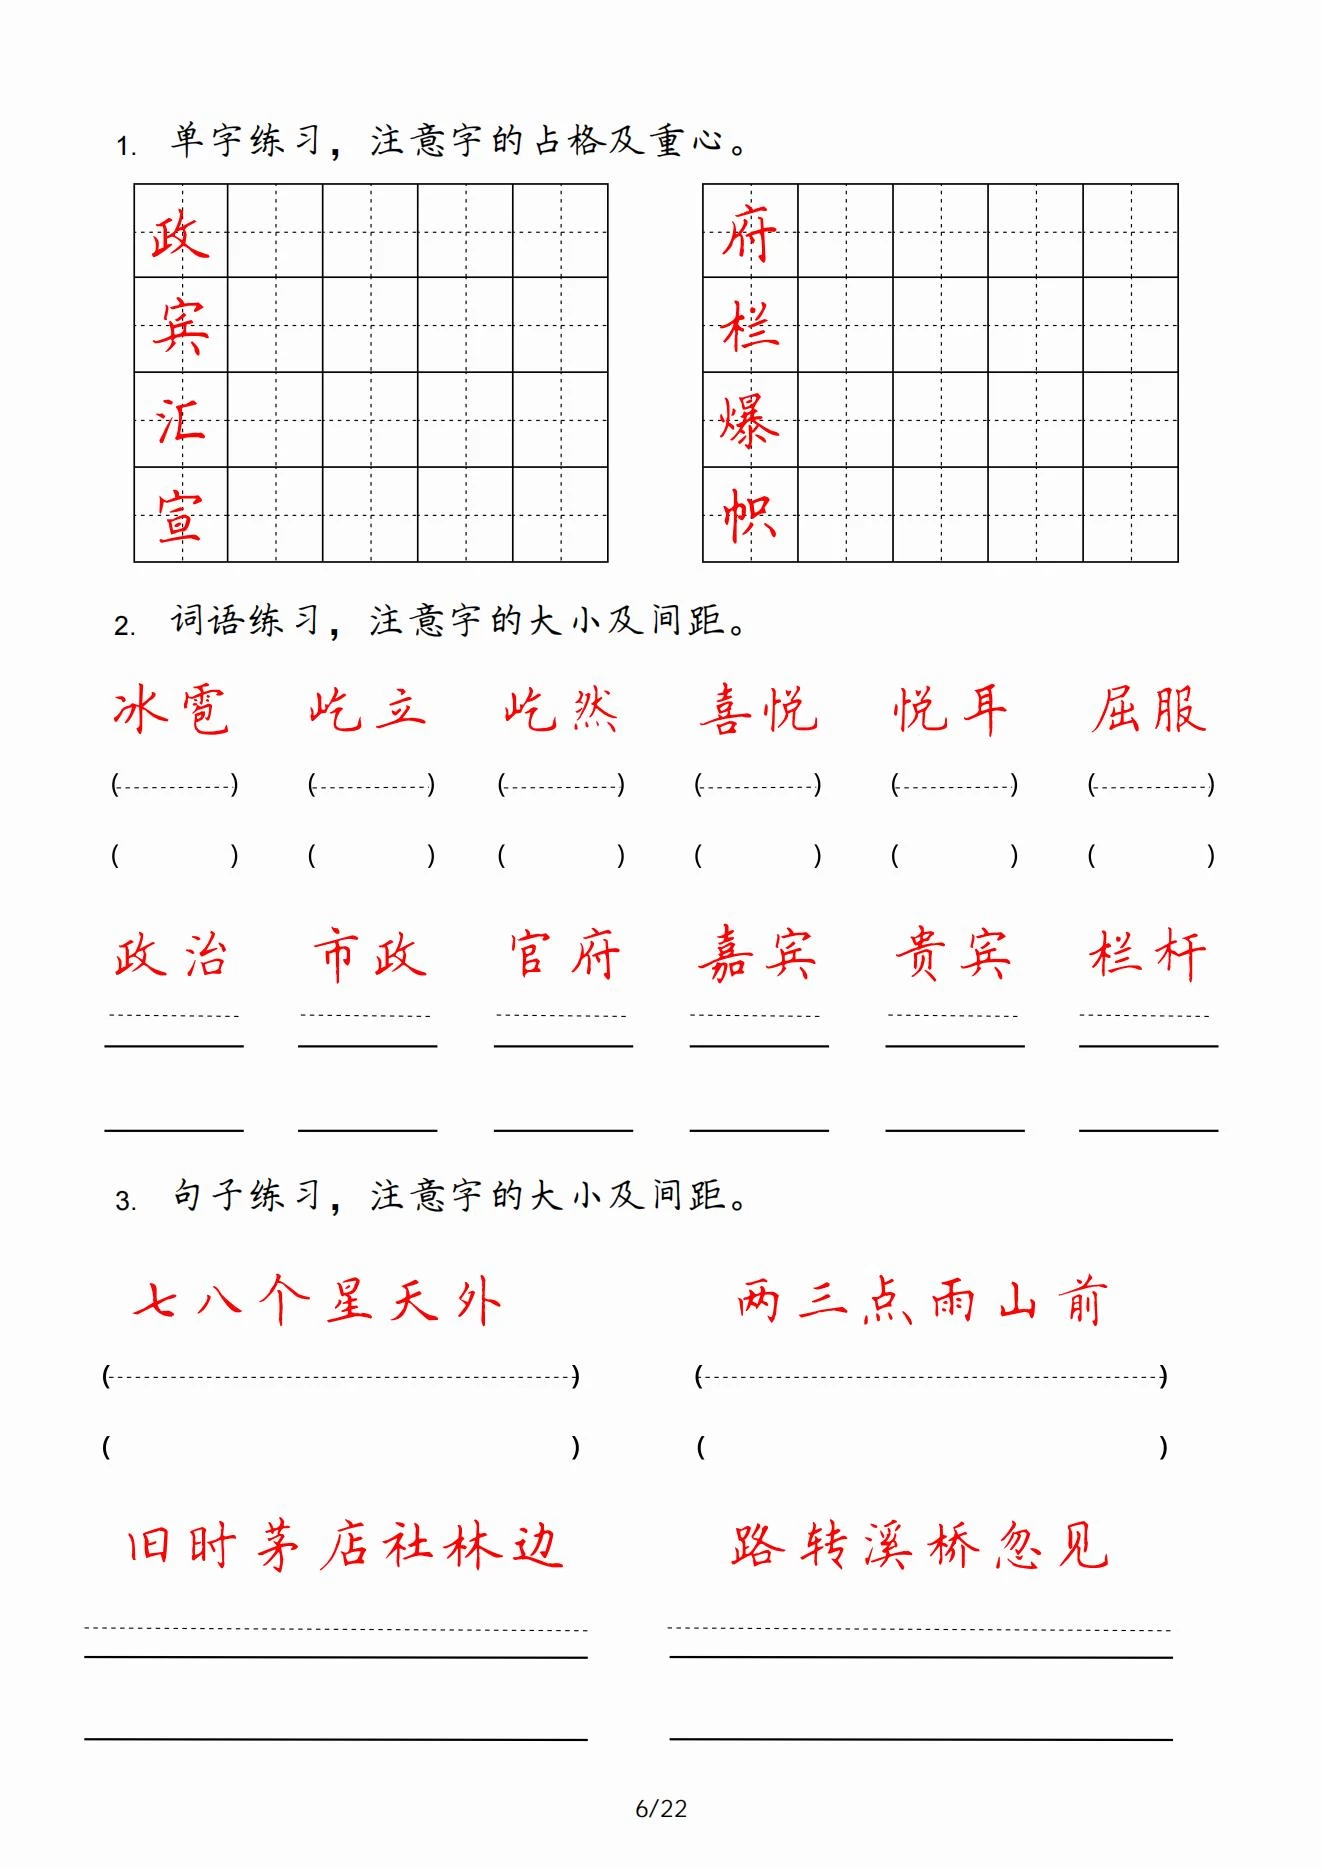 1. 单字练习，注意字的占格及重心。
政 府
宾 栏
汇 爆
宣 帜
2. 词语练习，注意字的大小及间距。
冰雹 屹立 屹然 喜悦 悦耳 屈服
( ) ( ) ( ) ( ) ( ) ( )
( ) ( ) ( ) ( ) ( ) ( )
政治 市政 官府 嘉宾 贵宾 栏杆
3. 句子练习，注意字的大小及间距。
七八个星天外 两三点雨山前
( ) ( )
( ) ( )
旧时茅店社林边 路转溪桥忽见
6/22